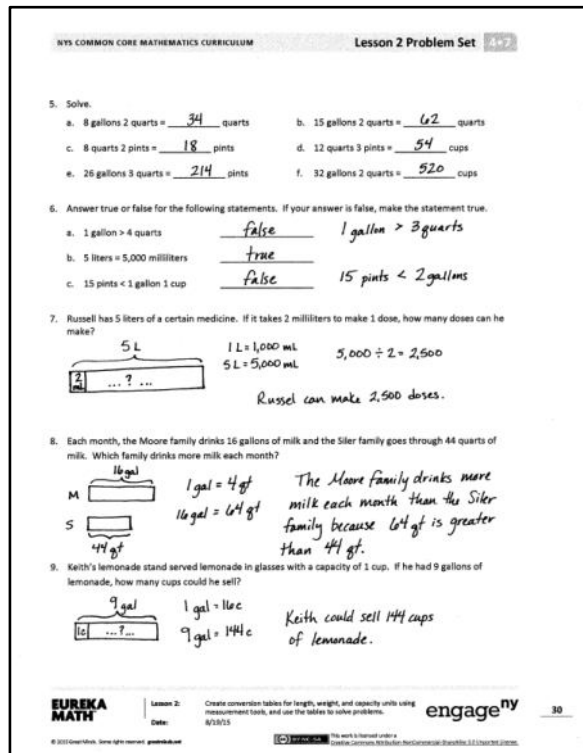 NYS COMMON CORE MATHEMATICS CURRICULUM Lesson 2 Problem Set 4•7
5. Solve.
a. 8 gallons 2 quarts = 34 quarts b. 15 gallons 2 quarts = 62 quarts
c. 8 quarts 2 pints = 18 pints d. 12 quarts 3 pints = 54 cups
e. 26 gallons 3 quarts = 214 pints f. 32 gallons 2 quarts = 520 cups
6. Answer true or false for the following statements. If your answer is false, make the statement true.
a. 1 gallon > 4 quarts false 1 gallon > 3 quarts
b. 5 liters = 5,000 milliliters true
c. 15 pints < 1 gallon 1 cup false 15 pints < 2 gallons
7. Russell has 5 liters of a certain medicine. If it takes 2 milliliters to make 1 dose, how many doses can he
make?
5 L 1 L = 1,000 mL
5 L = 5,000 mL 5,000 ÷ 2 = 2,500
2 mL ... ? ...
Russel can make 2,500 doses.
8. Each month, the Moore family drinks 16 gallons of milk and the Siler family goes through 44 quarts of
milk. Which family drinks more milk each month?
16 gal
M
S
44 qt
1 gal = 4 qt
16 gal = 64 qt
The Moore family drinks more
milk each month than the Siler
family because 64 qt is greater
than 44 qt.
9. Keith's lemonade stand served lemonade in glasses with a capacity of 1 cup. If he had 9 gallons of
lemonade, how many cups could he sell?
9 gal
1c ...?...
1 gal = 16c
9 gal = 144 c
Keith could sell 144 cups
of lemonade.
EUREKA
MATH
Lesson 2: Create conversion tables for length, weight, and capacity units using
measurement tools, and use the tables to solve problems.
Date: 8/19/15
engage ny
30
© 2015 Great Minds. Some rights reserved. greatminds.net
This work is licensed under a
Creative Commons Attribution-NonCommercial-ShareAlike 3.0 Unported License.